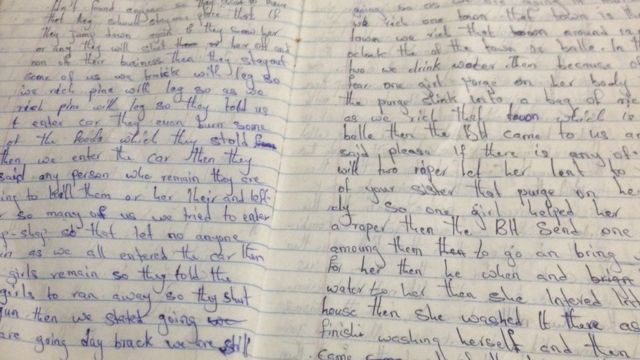 don't found anyone so they
that they shall
they jump down again if they saw her
or any they will shut them or her off and
non of their business then they stayed
some of us we breack with leg so
we rich pine will leg so as we
rich pine will leg so they told us
t enter car they even burn some
of the foods which they stold
then we enter the car then they
said any person who remain they are
ing to kill them or her their and left
so many of us we tried to enter
so that let no anyone
n as we all entered the car then
girls remain so they told the
girls to ran away so they shut
gun then we start going
are going day brack we are still
we rich one town that town is the
town we rich that town around 12
oclock the of the town is balle. In
two we drink water then because of
fear one girl purge on her body
the purge stink into a bag of
as we rich that town which is
balle then the BH came to us a
said please if there is any of
will two raper let her lent to
of your sister that purge on he
dy so one girl helped her
a raper then the BH send one
amoung them then to go an bring
for her then he when and brign
water to her then she Intered
house then she washed it there as
finishi washing herself and then
came